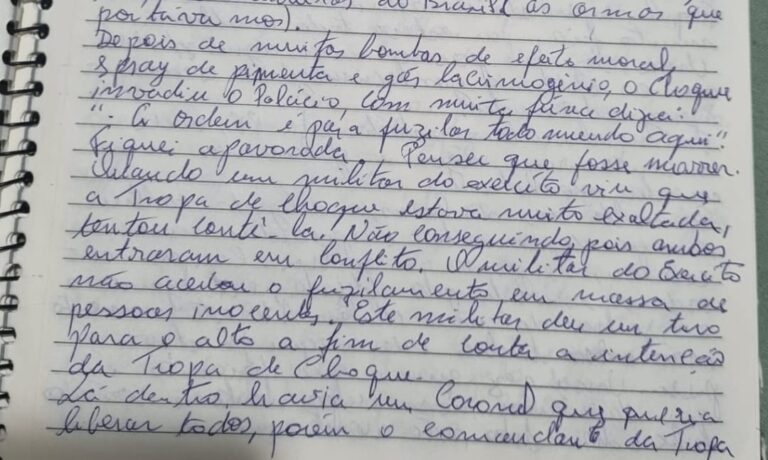 do Brasil as armas que
portávamos).
Depois de muitas bombas de efeito moral,
spray de pimenta e gás lacrimogênio, o Choque
invadiu o Palácio, com muita fúria dizia:
"- A ordem é para fuzilar todo mundo aqui".
Fiquei apavorada. Pensei que fosse morrer.
Quando um militar do exército viu que
a Tropa de Choque estava muito exaltada,
tentou contê-la. Não conseguindo, pois ambos
entraram em conflito. O militar do Exército
não aceitou o fuzilamento em massa de
pessoas inocentes. Este militar deu um tiro
para o alto a fim de conter a intenção
da Tropa de Choque.
Lá dentro havia um Coronel que queria
liberar todos, porém o comandante da Tropa